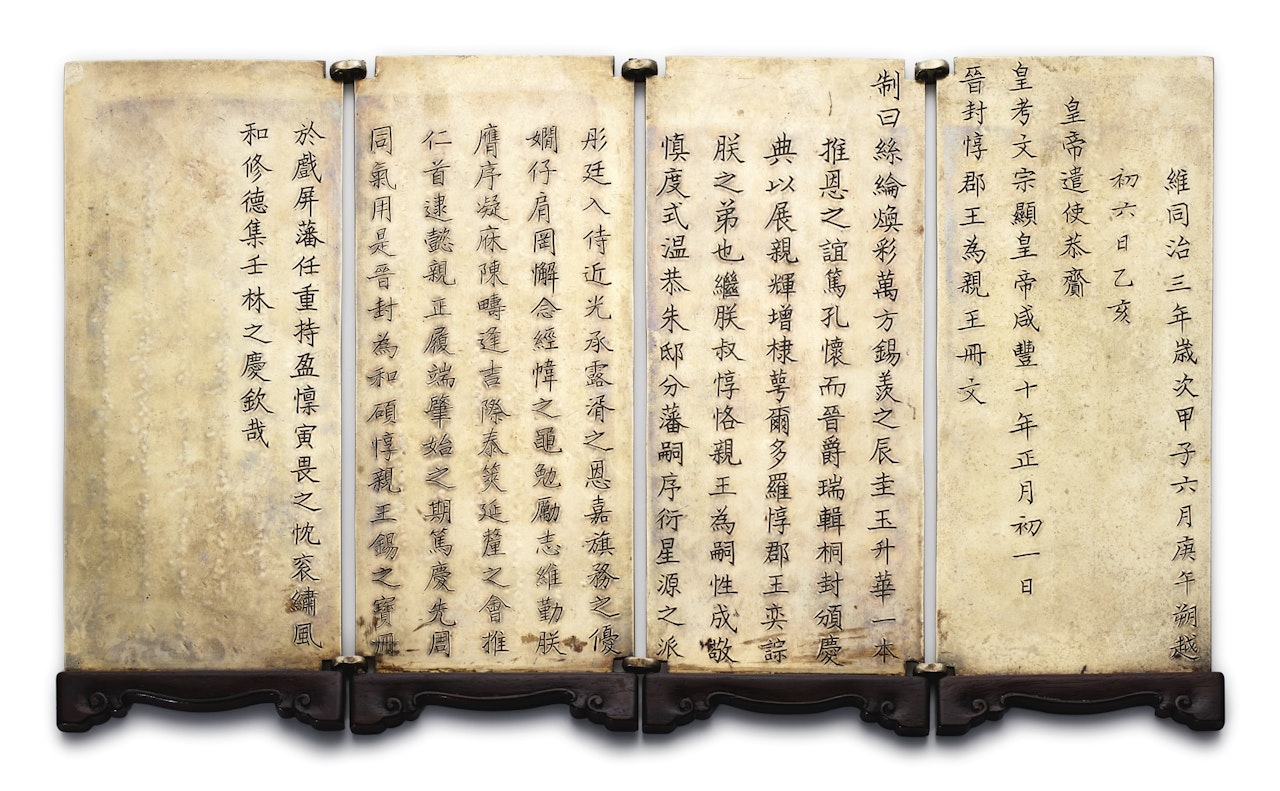 維同治三年歲次甲子六月庚午朔越
初六日乙亥
皇帝遣使恭齎
皇考文宗顯皇帝咸豐十年正月初一日
晉封惇郡王為親王冊文
制曰絲綸煥彩萬方錫羨之辰圭玉升華一本
推恩之誼篤孔懷而晉爵瑞輯桐封頒慶
典以展親輝增棣萼爾多羅惇郡王奕誴
朕之弟也繼朕叔惇恪親王為嗣性成敬
慎度式溫恭朱邸分藩嗣序衍星源之派
彤廷入侍近光承露湑之恩嘉旗務之優
嫺仔肩罔懈念經幃之黽勉勵志維勤朕
膺序凝庥陳疇逢吉際泰筴延釐之會推
仁首逮懿親正履端肇始之期篤慶先周
同氣用是晉封為和碩惇親王錫之寶冊
於戲屏藩任重持盈懍寅畏之忱衮繡風
和修德集壬林之慶欽哉